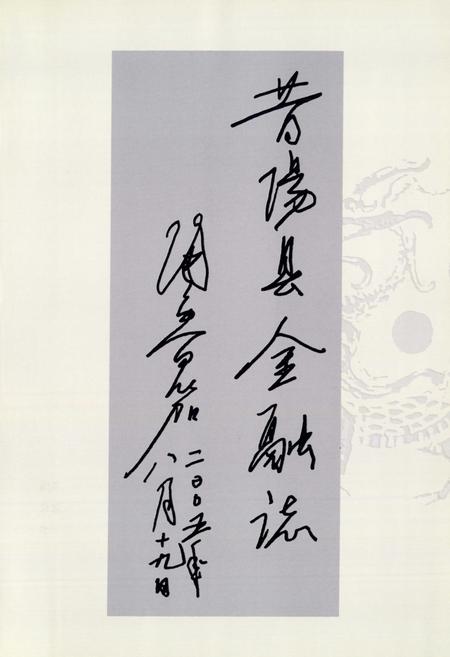 昔陽县金融志
二〇〇五年
八月十九日